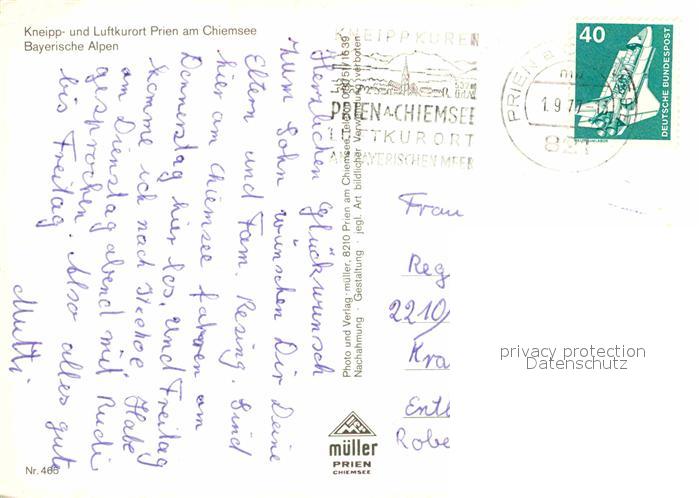 Kneipp- und Luftkurort Prien am Chiemsee
Bayerische Alpen
Herzlichen Glückwunsch
zum Sohn wünschen Dir Deine
Eltern und Fam. Resing. Sind
hier am Chiemsee fahren am
Donnerstag hier los, und Freitag
komme ich nach Itzehoe. Habe
am Dienstag abend mit Rudi
gesprochen. Also alles gut
bis Freitag.
Mutti.
Nr. 468
Photo und Verlag: müller, 8210 Prien am Chiemsee, Telefon 08051/1639
Nachahmung · Gestaltung · jegl. Art bildlicher Verwertung verboten
müller
PRIEN
CHIEMSEE
KNEIPPKUREN
PRIEN A. CHIEMSEE
LUFTKURORT
AM BAYERISCHEN MEER
PRIEN a. C
1.9.7
821
40
DEUTSCHE BUNDESPOST
Frau
Reg
2210
Kra
Entl
Robe
privacy protection
Datenschutz